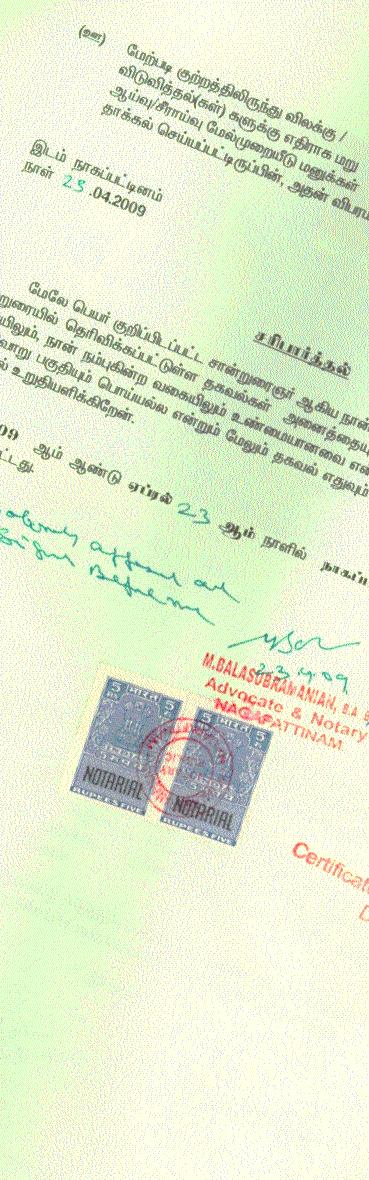 (ஊ) மேற்படி குற்றத்திலிருந்து விலக்கு /
விடுவித்தல்(கள்) களுக்கு எதிராக மறு
ஆய்வு/சீராய்வு மேல்முறையீடு மனுக்கள்
தாக்கல் செய்யப்பட்டிருப்பின், அதன் விபரம
இடம் நாகப்பட்டினம்
நாள் 23 .04.2009
சரிபார்த்தல்
மேலே பெயர் குறிப்பிடப்பட்ட சான்றுரைஞர் ஆகிய நான்
றுரையில் தெரிவிக்கப்பட்டுள்ள தகவல்கள் அனைத்தையு
யிலும், நான் நம்புகின்ற வகையிலும் உண்மையானவை என்
வாறு பகுதியும் பொய்யல்ல என்றும் மேலும் தகவல் எதுவும்
ல் உறுதியளிக்கிறேன்.
09 ஆம் ஆண்டு ஏப்ரல் 23 ஆம் நாளில் நாகப்ப
ட்டது.
Before me
23.4.09
M.BALASUBRAMANIAN, B.A B
Advocate & Notary
NAGAPATTINAM
5 भारत 5
5 भारत
NOTARIAL
NOTARIAL
RUPEES FIVE
RUPEES FIVE
Certificate